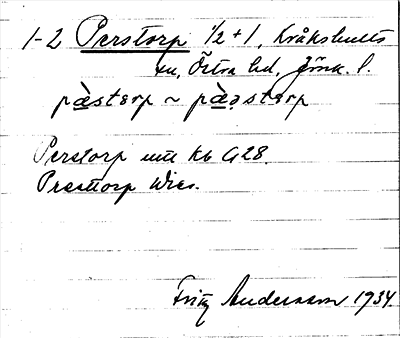 1-2 Perstorp 1/2 + 1, Kråkshults
sn, Östra hd, Jönk. l.
pæ̀sterp ~ pæ̀ꝛsterp
Perstorp utt Kb G28.
Presttorp Wies.
Fritz Andersson 1934.